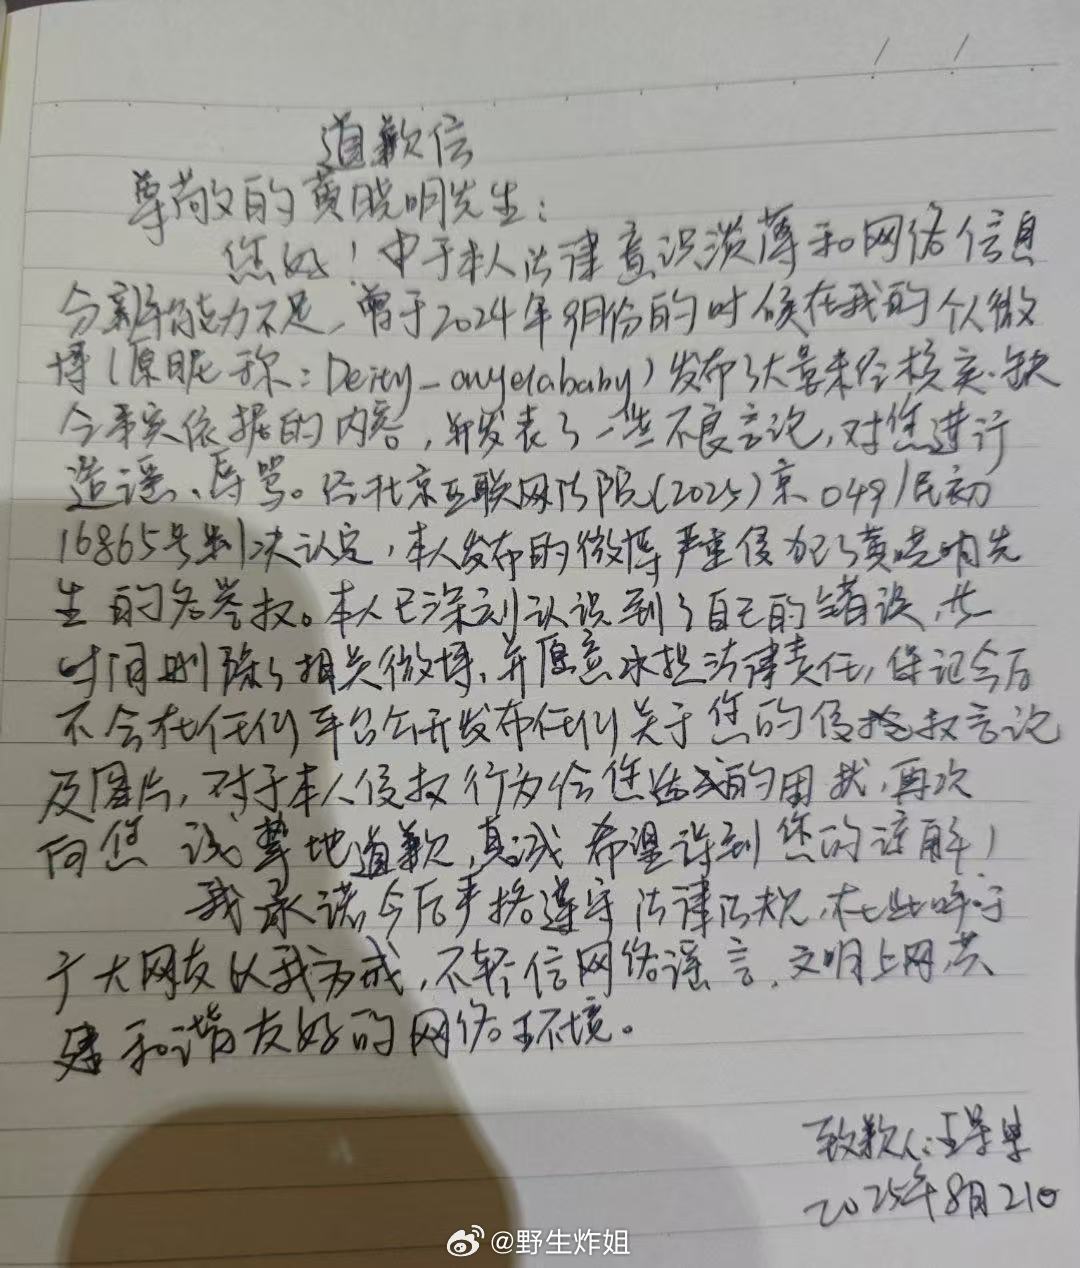 道歉信
尊敬的黄晓明先生：
您好！由于本人法律意识淡薄和网络信息
分辨能力不足，曾于2024年9月份的时候在我的个人微
博（原昵称：Deity_anyelababy）发布了大量未经核实、缺
乏事实依据的内容，并发表了一些不良言论，对您进行
造谣、辱骂。经北京互联网法院（2025）京0491民初
16865号判决认定，本人发布的微博严重侵犯了黄晓明先
生的名誉权。本人已深刻认识到了自己的错误，此
时间删除了相关微博，并愿意承担法律责任，保证今后
不会在任何平台公开发布任何关于您的侵权言论
及图片，对于本人侵权行为给您造成的困扰，再次
向您诚挚地道歉，真诚希望得到您的谅解！
我承诺今后严格遵守法律法规，在此呼吁
广大网友以我为戒，不轻信网络谣言，文明上网共
建和谐友好的网络环境。
致歉人：王
2025年8月21日
@野生炸姐